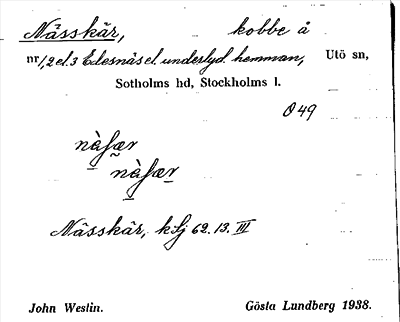 Nässkär, kobbe å
nr 1, 2 el. 3 Edesnäs el. underlyd. hemman, Utö sn,
Sotholms hd, Stockholms l.
O 49
Nässkär, 62. 13. III
John Westin. Gösta Lundberg 1938.